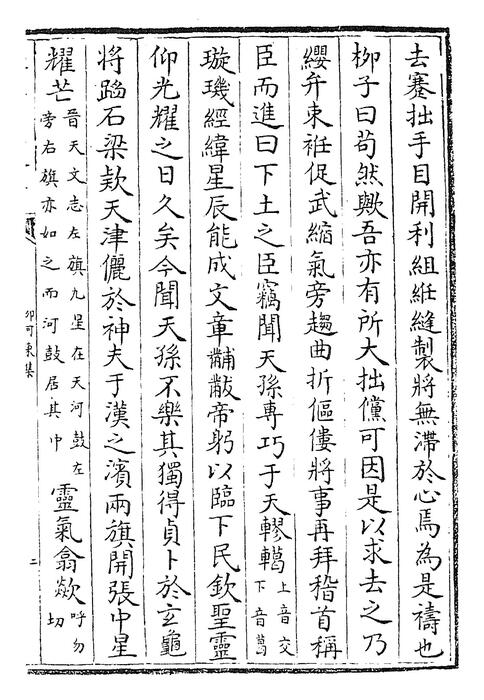 去蹇拙手目開利組紝縫製將無滯於心焉為是禱也
柳子曰苟然歟吾亦有所大拙儻可因是以求去之乃
纓弁束衽促武縮氣旁趨曲折傴僂將事再拜稽首稱
臣而進曰下土之臣竊聞天孫專巧于天轇轕上音交下音葛
璇璣經緯星辰能成文章黼黻帝躬以臨下民欽聖靈
仰光耀之日久矣今聞天孫不樂其獨得貞卜於玄龜
將蹈石梁欵天津儷於神夫于漢之濱兩旗開張中星
耀芒晉天文志左旗九星在天河鼓左旁右旗亦如之而河鼓居其中靈氣翕欻呼勿切
柳河東集
二